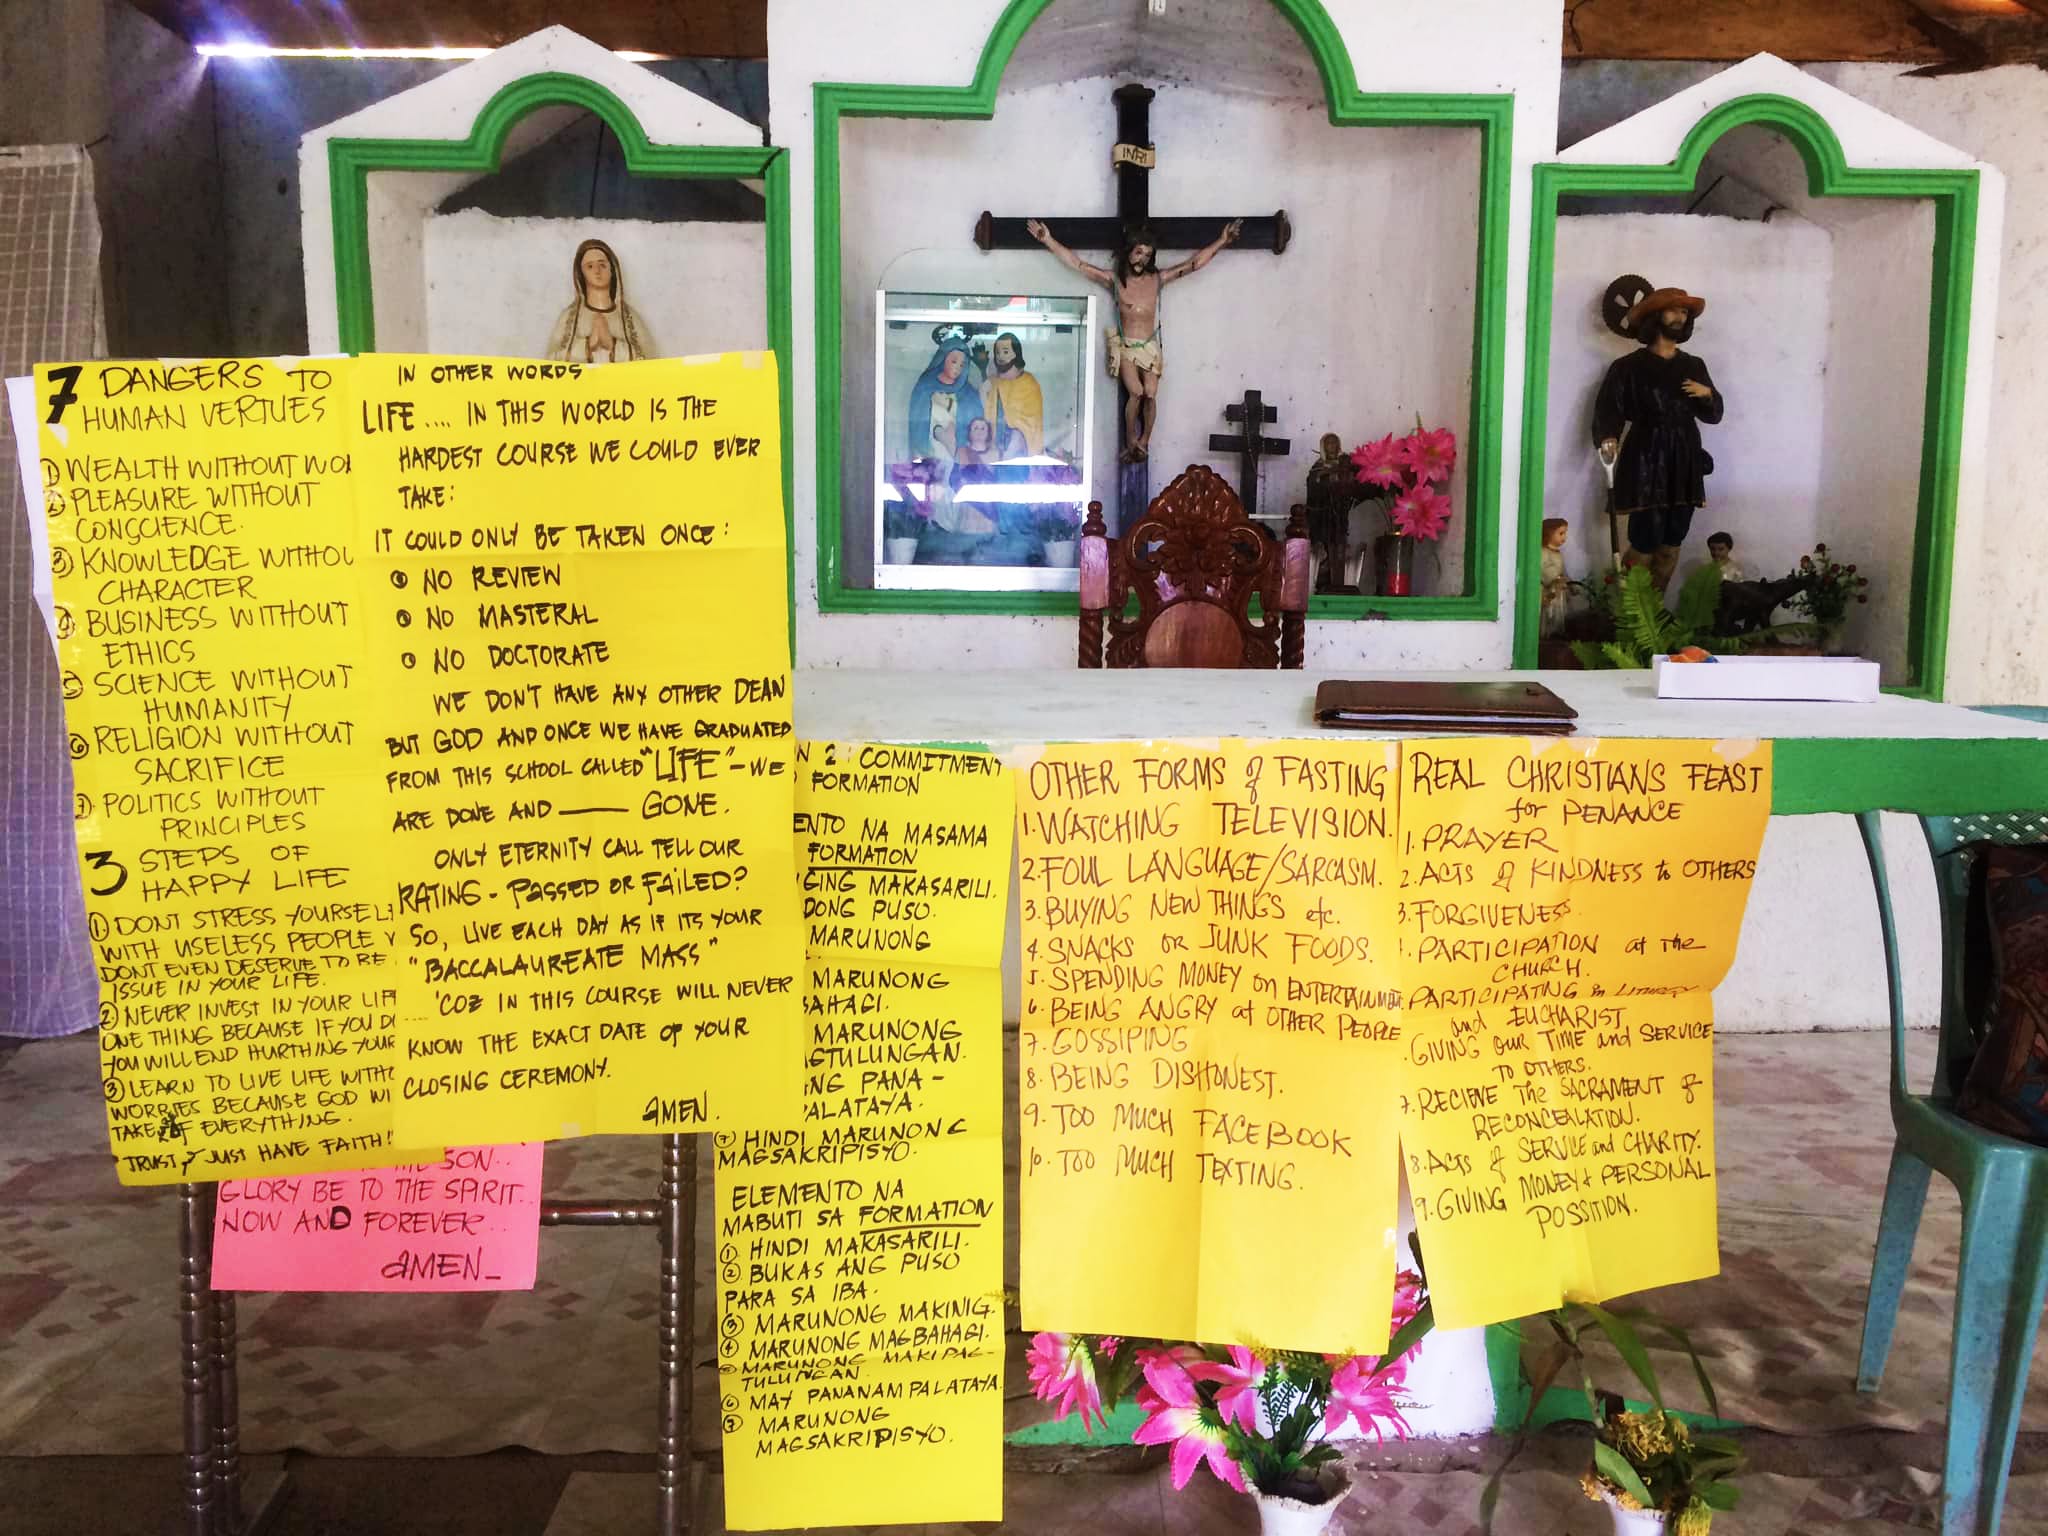 INRI
7 DANGERS TO
HUMAN VERTUES
① WEALTH WITHOUT
② PLEASURE WITHOUT
CONSCIENCE.
③ KNOWLEDGE
CHARACTER
④ BUSINESS WITHOUT
ETHICS
⑤ SCIENCE WITHOUT
HUMANITY
⑥ RELIGION WITHOUT
SACRIFICE
⑦ POLITICS WITHOUT
PRINCIPLES
3 STEPS OF
HAPPY LIFE
① DONT STRESS
WITH USELESS PEOPLE
DONT EVEN DESERVE TO BE
ISSUE IN YOUR LIFE.
② NEVER INVEST IN YOUR
ONE THING BECAUSE IF YOU
YOU WILL END HURTHING
③ LEARN TO LIVE LIFE
WORRIES BECAUSE GOD
TAKE OF EVERYTHING.
"TRUST, JUST HAVE FAITH!
IN OTHER WORDS
LIFE .... IN THIS WORLD IS THE
HARDEST COURSE WE COULD EVER
TAKE:
IT COULD ONLY BE TAKEN ONCE:
NO REVIEW
NO MASTERAL
NO DOCTORATE
WE DON'T HAVE ANY OTHER DEAN
BUT GOD AND ONCE WE HAVE GRADUATED
FROM THIS SCHOOL CALLED "LIFE" - WE
ARE DONE AND —— GONE.
ONLY ETERNITY CALL TELL OUR
RATING - PASSED OR FAILED?
SO, LIVE EACH DAY AS IF ITS YOUR
"BACCALAUREATE MASS"
.... 'COZ IN THIS COURSE WILL NEVER
KNOW THE EXACT DATE OF YOUR
CLOSING CEREMONY.
AMEN.
SON..
GLORY BE TO THE SPIRIT..
NOW AND FOREVER..
AMEN_
2: COMMITMENT
FORMATION
NA MASAMA
FORMATION
MAKASARILI.
PUSO.
MARUNONG
MARUNONG
MARUNONG
PANA-
⑦ HINDI MARUNONG
MAGSAKRIPISYO.
ELEMENTO NA
MABUTI SA FORMATION
① HINDI MAKASARILI.
② BUKAS ANG PUSO
PARA SA IBA.
③ MARUNONG MAKINIG.
④ MARUNONG MAGBAHAGI.
⑤ MARUNONG MAKIPAG-
TULUNGAN.
⑥ MAY PANANAMPALATAYA.
⑦ MARUNONG
MAGSAKRIPISYO.
OTHER FORMS of FASTING
1. WATCHING TELEVISION.
2. FOUL LANGUAGE/SARCASM.
3. BUYING NEW THINGS etc.
4. SNACKS OR JUNK FOODS.
5. SPENDING MONEY on ENTERTAINMENT
6. BEING ANGRY at OTHER PEOPLE
7. GOSSIPING
8. BEING DISHONEST.
9. TOO MUCH FACEBOOK
10. TOO MUCH TEXTING.
REAL CHRISTIANS FEAST
for PENANCE
1. PRAYER
2. ACTS of KINDNESS to OTHERS
3. FORGIVENESS.
PARTICIPATION at the
CHURCH.
PARTICIPATING in LITURGY
and EUCHARIST
GIVING OUR TIME and SERVICE
TO OTHERS.
7. RECIEVE THE SACRAMENT of
RECONCELATION.
8. ACTS of SERVICE and CHARITY.
9. GIVING MONEY & PERSONAL
POSSITION.